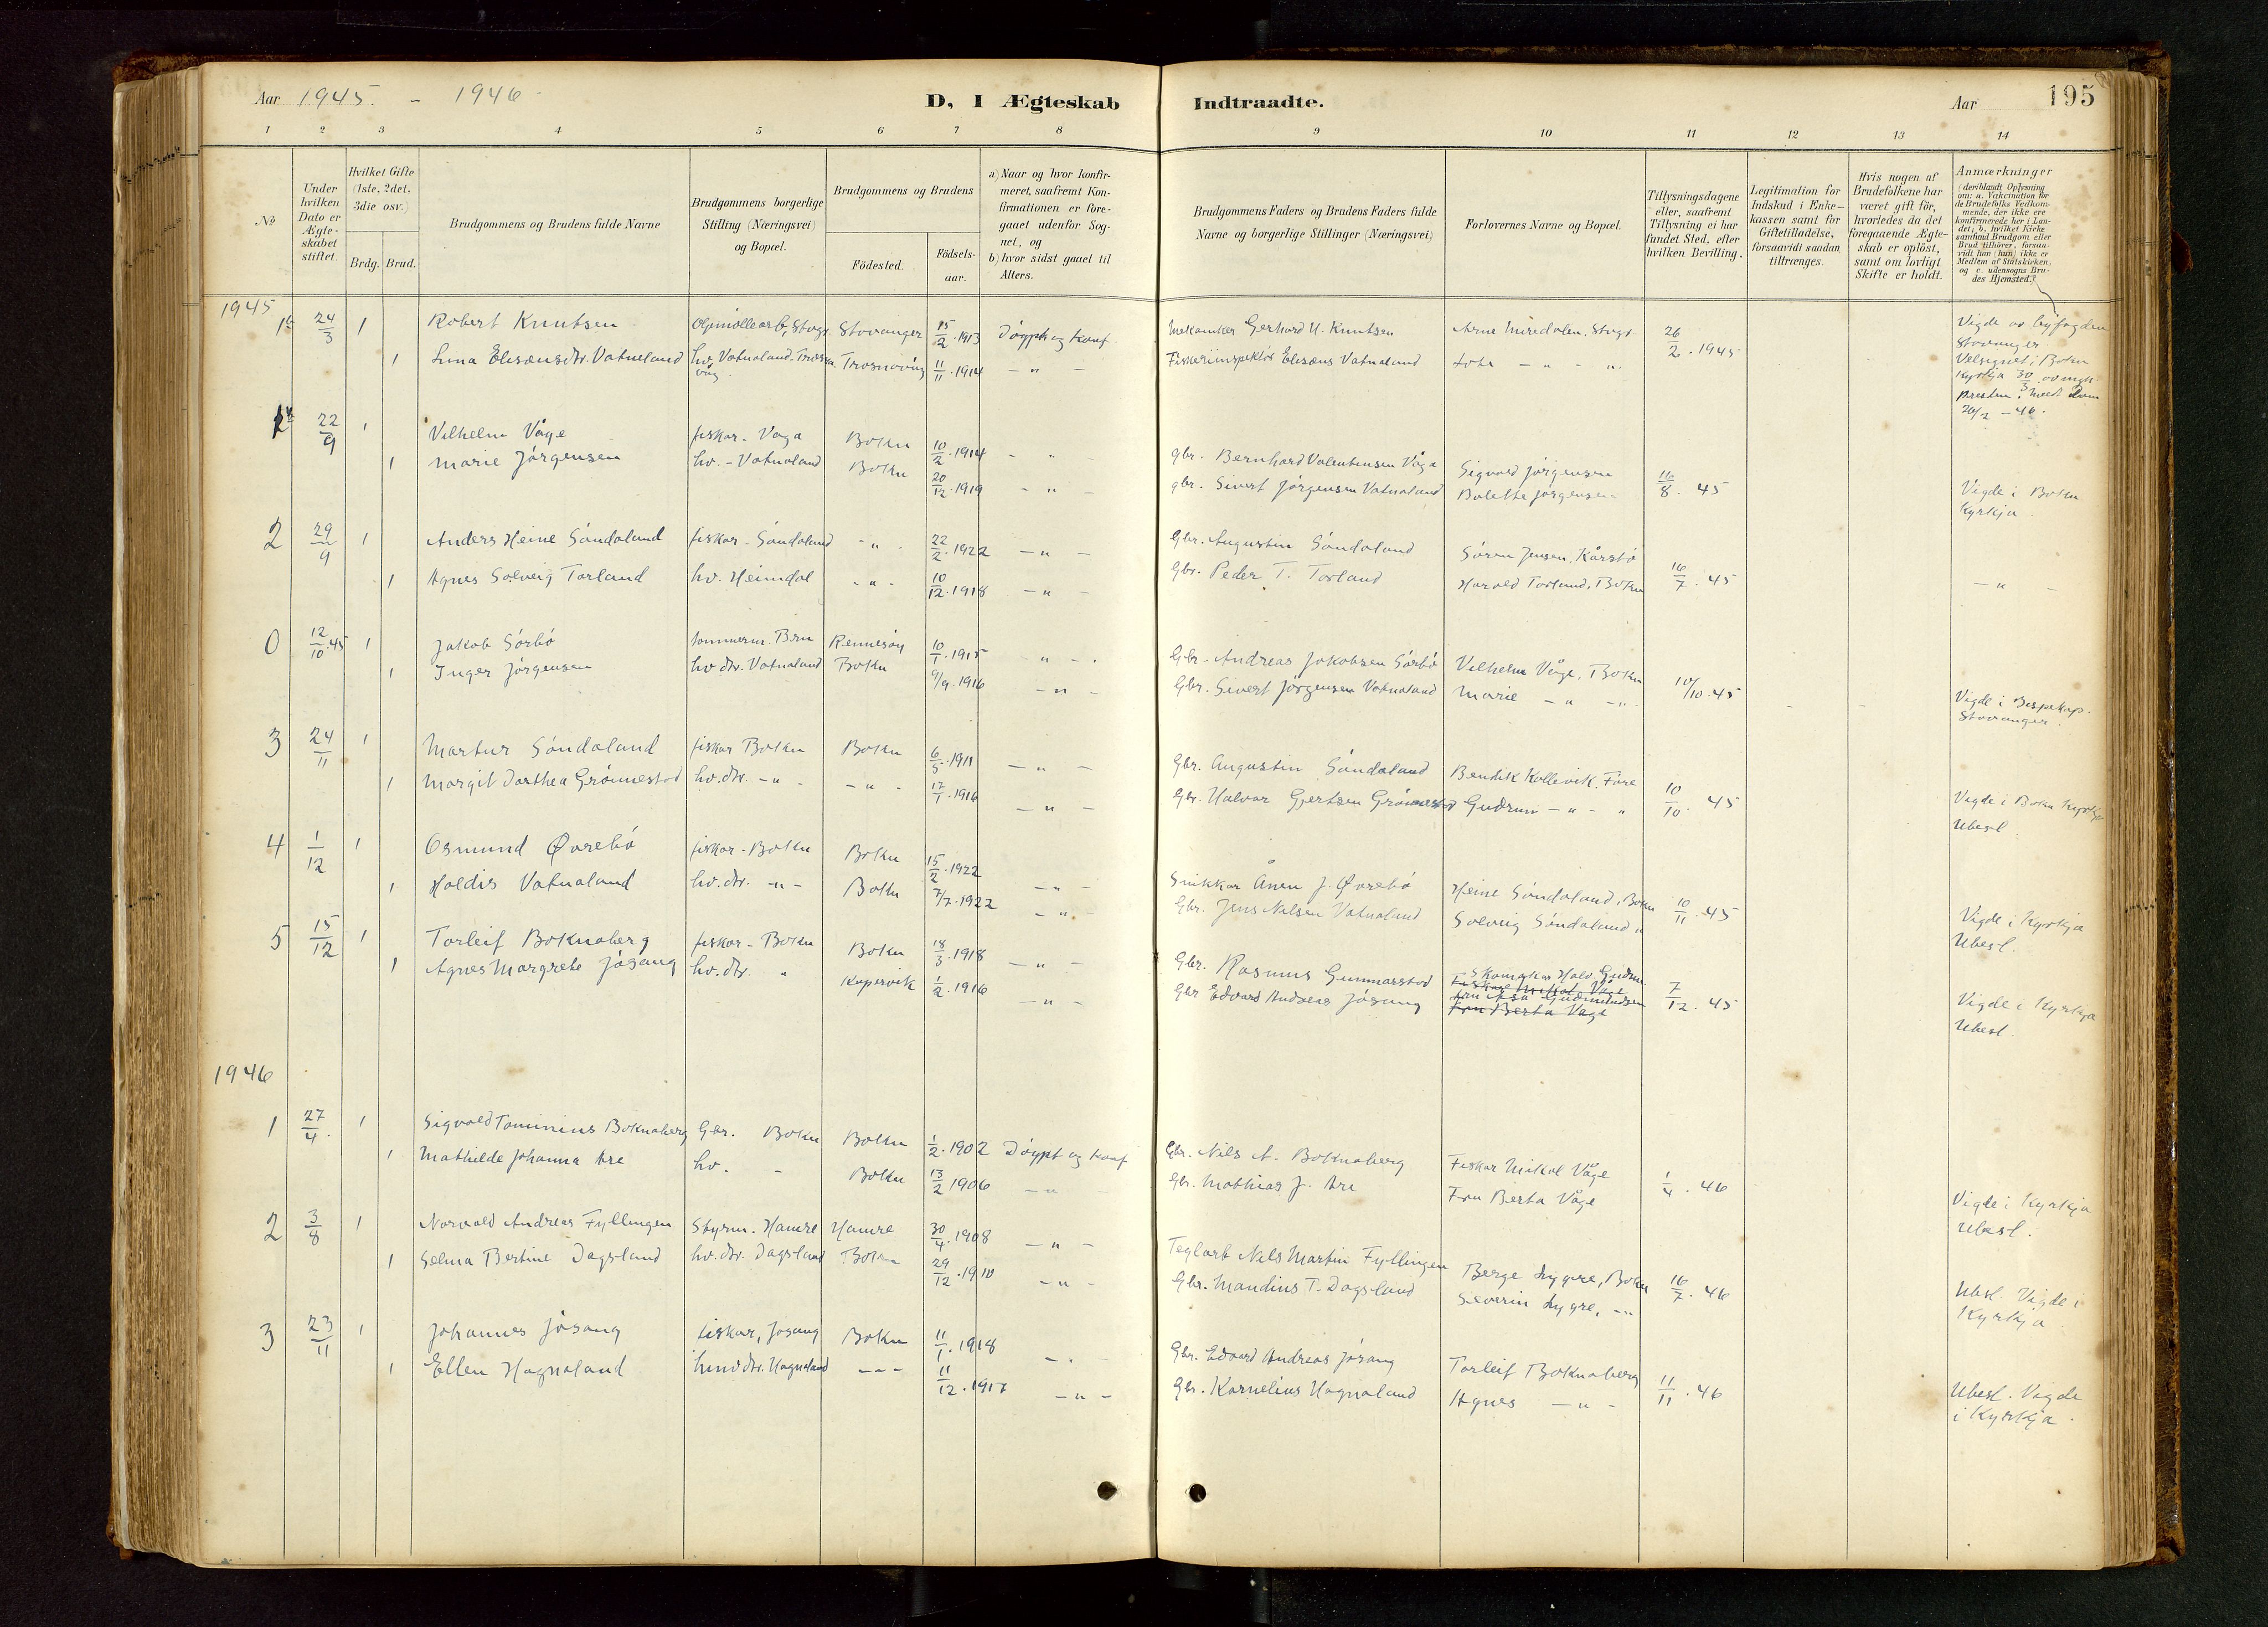 Aar 1945. - 1946
D, I Ægteskab
Indtraadte.
Aar 195
1 2 3 4 5 6 7 8
9 10 11 12 13 14
No
Under hvilken Dato er Ægteskabet stiftet.
Hvilket Gifte (1ste, 2det, 3die osv.)
Brdg. Brud.
Brudgommens og Brudens fulde Navne
Brudgommens borgerlige Stilling (Næringsvei) og Bopæl.
Brudgommens og Brudens
Födested.
Födsels-aar.
a) Naar og hvor konfirmeret, saafremt Konfirmationen er foregaaet udenfor Sognet, og
b) hvor sidst gaaet til Alters.
Brudgommens Faders og Brudens Faders fulde Navne og borgerlige Stillinger (Næringsvei)
Forlovernes Navne og Bopæl.
Tillysningsdagene eller, saafremt Tillysning ei har fundet Sted, efter hvilken Bevilling.
Legitimation for Indskud i Enkekassen samt for Giftetilladelse, forsaavidt saadan tiltrænges.
Hvis nogen af Brudefolkene har været gift för, hvorledes da det foregaaende Ægteskab er oplöst, samt om lovligt Skifte er holdt.
Anmærkninger
(deriblandt Oplysning om: a. Vakcination for de Brudefolks Vedkommende, der ikke ere konfirmerede her i Landet; b. hvilket Kirkesamfund Brudgom eller Brud tilhörer, forsaavidt han (hun) ikke er Medlem af Statskirken, og c. udensogns Brudes Hjemsted.)
1945
24/3 1 Robert Knutsen Stavanger 15/2.1913 Döypt og konf. Mekaniker Gerhard H. Knutsen 26/2.1945 Vigde av byfogden Stavanger.
1 Lina Elisæusdtr. Vatnaland hv. Vatnaland 11/11.1914 - " - Fiskeriinspektör Elisæus Vatnaland - " - " Velsignet i Bokn Kyrkja 30/3
20/2 - 46.
22/9 1 Vilhelm Våge fiskar - Våga Bokn 10/2.1914 - " - gbr. Bernhard Valentinsen Våga Sigvard Jörgensen 16/8. 45 Vigde i Bokn Kyrkja
1 Marie Jörgensen hv. - Vatnaland Bokn 20/12.1919 - " - gbr. Sivert Jörgensen Vatnaland Bolette Jörgensen
2 29/9 1 Anders Heine Söndaland fiskar - Söndaland - " - 22/2.1922 - " - Gbr. Augustin Söndaland Sören Jensen, Kårstö 16/7. 45 - " -
1 Agnes Solveig Torland hv. Heimdal - " - 10/12.1918 - " - Gbr. Peder T. Torland Harald Torland, Bokn
0 12/10.45 1 Jakob Sörbö tömmerm. Bru Rennesöy 10/1.1915 - " - Gbr. Andreas Jakobsen Sörbö Vilhelm Våge, Bokn 10/10.45 Vigde i Bispekap. Stavanger.
1 Inger Jörgensen hv.dtr. Vatnaland Bokn 9/9.1916 - " - Gbr. Sivert Jörgensen Vatnaland Marie - " - " -
3 24/11 1 Söndaland fiskar Bokn Bokn 6/5.1911 - " - Gbr. Augustin Söndaland Bendik Kollevik, 10/10. 45 Vigde i Bokn Kyrkja Ubesl.
1 Margit Dorthea Grönnestad hv.dtr. - " - - " - 17/1.1916 - " - Gbr. Halvor Gjertsen Grönnestad Gudrun - " - "
4 1/12 1 Osmund Øvrebö fiskar - Bokn Bokn 15/2.1922 - " - Snikkar Ånen J. Øvrebö Heine Söndaland, Bokn 10/11.45 Vigde i Kyrkja Ubesl.
1 Haldis Vatnaland hv.dtr. - " - Bokn 7/7.1922 - " - Gbr. Jens Nilsen Vatnaland Solveig Söndaland "
5 15/12 1 Torleif Boknaberg fiskar - Bokn Bokn 18/3.1918 - " - Gbr. Rasmus Gunnarstad 7/12. 45 Vigde i Kyrkja Ubesl.
1 Agnes Margrete Jösang hv.dtr. " Kopervik 1/2.1916 - " - Gbr Edvard Andreas Jösang Fru Berta Våge
1946
1 27/4. 1 Sigvald Tominius Boknaberg Gbr. Bokn Bokn 1/2.1902 Döypt og konf Gbr. Nils A. Boknaberg Fiskar Mikal Våge 1/4. 46 Vigde i Kyrkja Ubesl.
1 Mathilde Johanna Are hv. - Bokn 13/2 1906 - " - Gbr. Mathias J. Are Fru Berta Våge
2 3/8 1 Norvald Andreas Fyllingen Styrm. Hamre Hamre 30/4.1908 - " - Teglarb Nils Martin Fyllingen Berge Lygre, Bokn 16/7. 46 Ubesl. Vigde i Kyrkja
1 Selma Bertine Dagsland hv.dtr. Dagsland Bokn 29/12.1910 - " - Gbr. Mandius T. Dagsland Severin Lygre, - " -
3 23/11 1 Johannes Jösang fiskar, Jösang Bokn 11/1.1918 - " - Gbr. Edvard Andreas Jösang Torleif Boknaberg 11/11.46 Ubesl. Vigde i Kyrkja.
1 Ellen Hognaland Hognaland - " - 11/12.1917 - " - Gbr. Kornelius Hognaland Agnes - " -